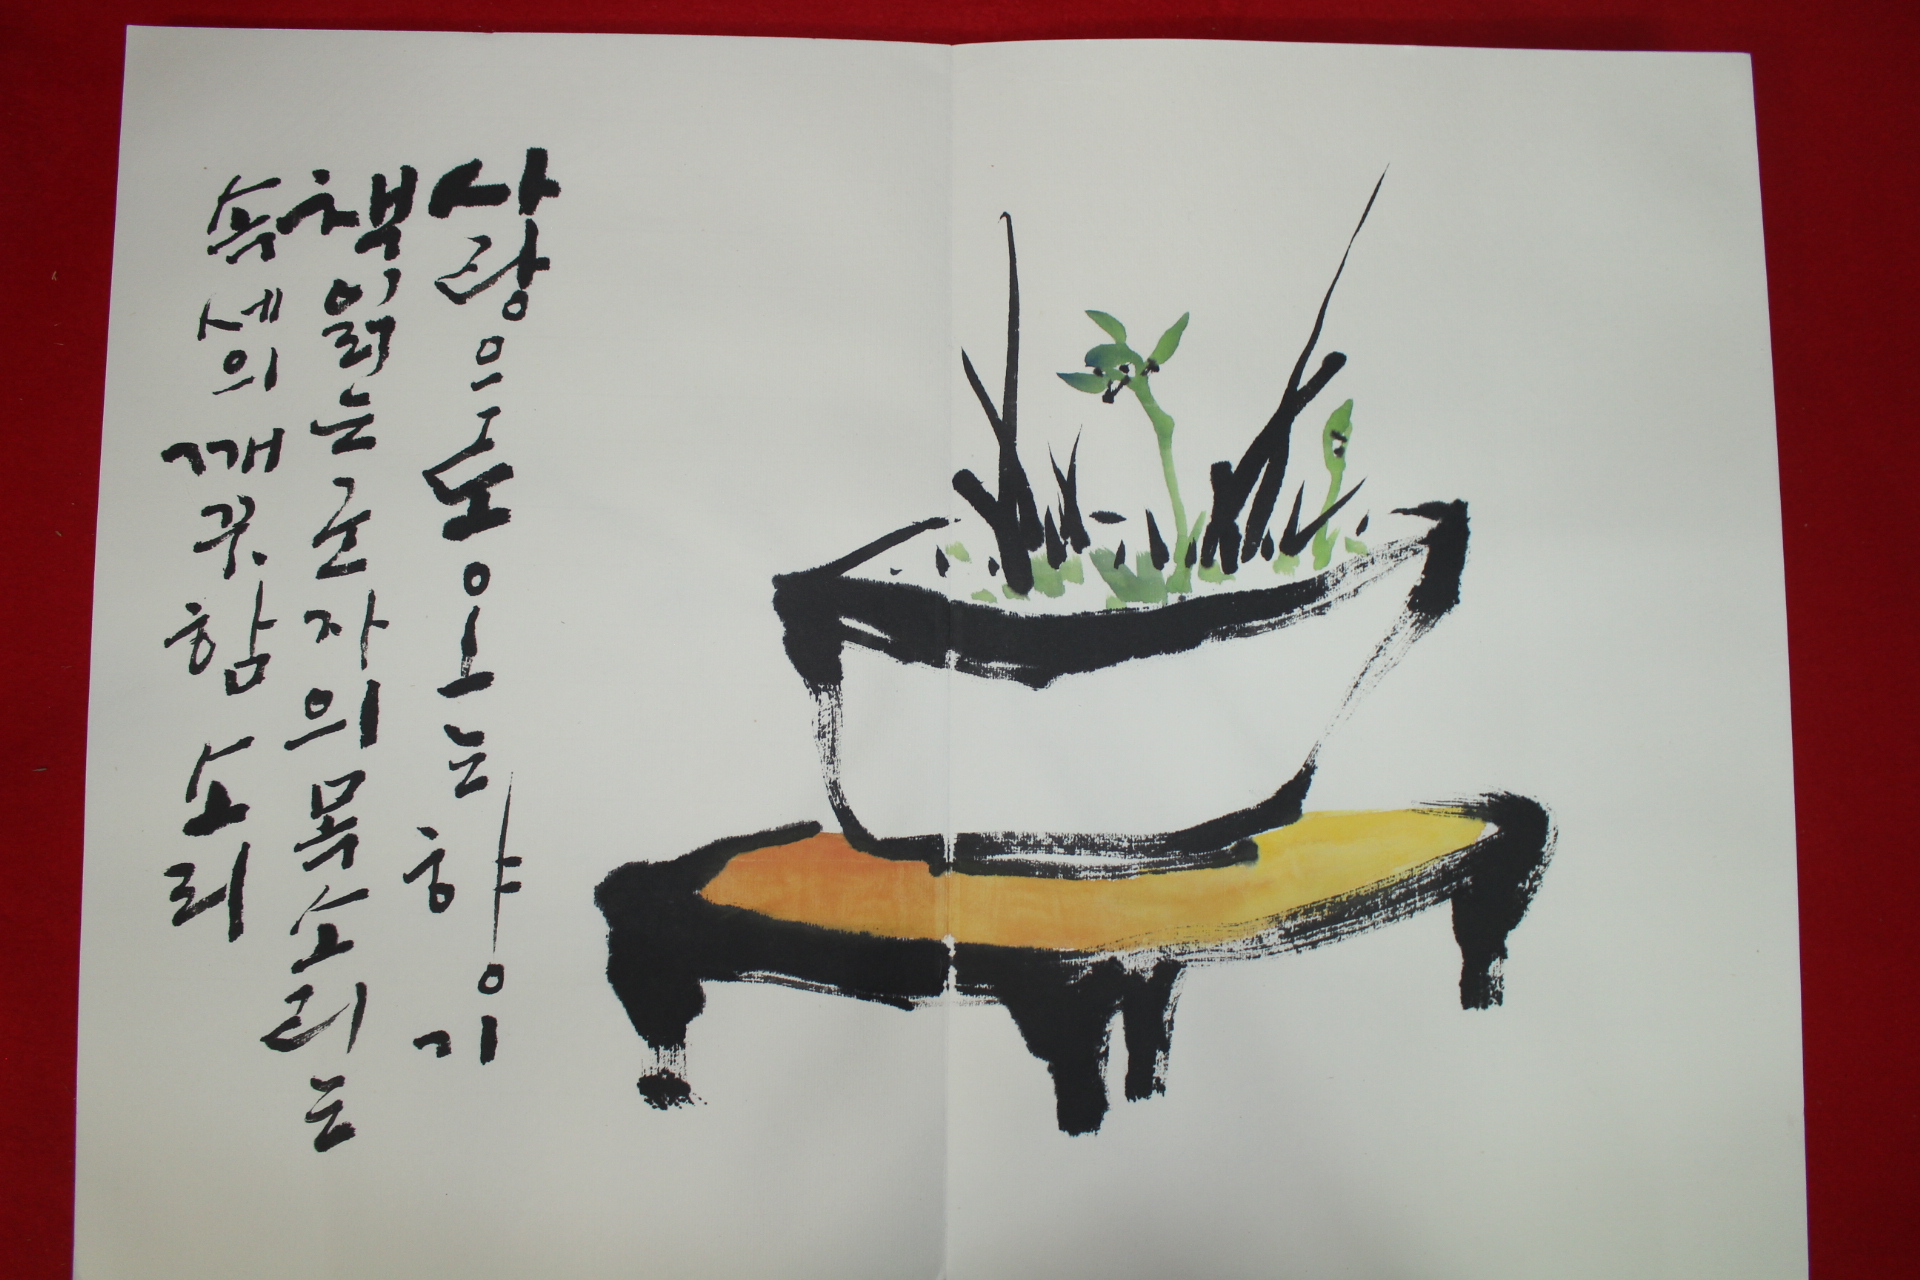 사랑으로 오는 향기
책 읽는 군자의 목소리는
속세의 깨끗함 소리